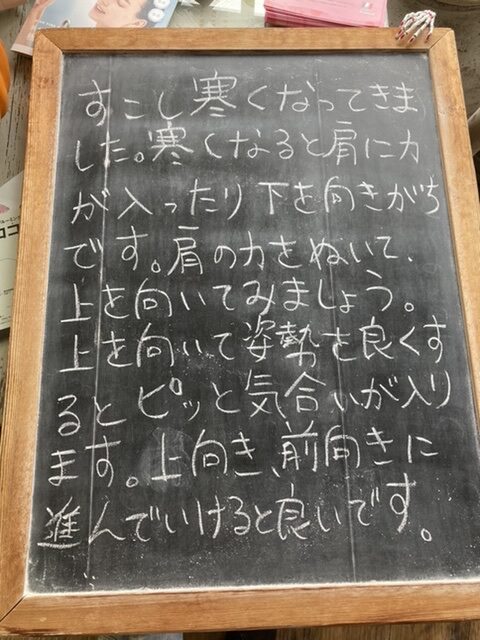 すこし寒くなってきま
した。寒くなると肩に力
が入ったり下を向きがち
です。肩の力をぬいて、
上を向いてみましょう。
上を向いて姿勢を良くす
るとピッと気合いが入り
ます。上向き、前向きに
進んでいけると良いです。